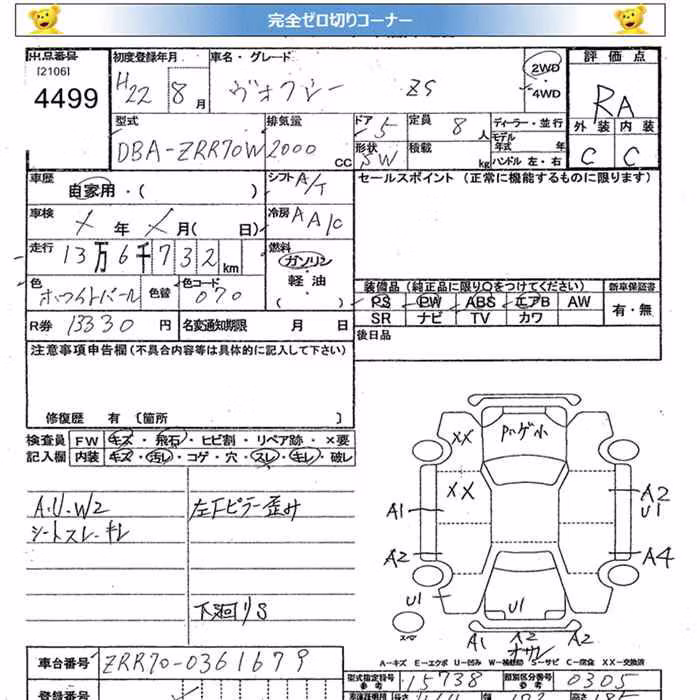 完全ゼロ切りコーナー
出品番号 [2106] 4499
初度登録年月 H22 8月
車名・グレード ヴォクシー ZS
2WD・4WD
評価点 RA
外装 内装
C C
型式 DBA-ZRR70W
排気量 2000 CC
ドア 5 形状 SW
定員 8人
積載 kg
ディーラー・並行
モデル年式 年
ハンドル 左・右
車歴 自家用・( )
シフト A/T
セールスポイント (正常に機能するものに限ります)
車検 X年 X月( 日)
冷房 AA/C
走行 13万6千732km
燃料 ガソリン・軽油
色 ホワイトパール 色替
色コード 070
装備品 (純正品に限り○をつけてください)
新車保証書
PS PW ABS エアB AW
有・無
SR ナビ TV カワ
R券 13330円
名変通知期限 月 日
後日品
注意事項申告欄 (不具合内容等は具体的に記入して下さい)
修復歴 有 [箇所 ]
検査員記入欄
FW キズ・飛石・ヒビ割・リペア跡・×要
内装 キズ・汚レ・コゲ・穴・スレ・キレ・破レ
A.U.W2
シートスレ・キレ
左下ピラー歪み
下廻りS
XX
ハゲ小
XX
A1
A2
U1
A2
A4
U1
U1
スペ
A1
A2
A2
A-キズ E-エクボ U-凹み W-補修跡 S-サビ C-腐食 XX-交換済
車台番号 ZRR70-0361679
型式指定番号 15738
類別区分番号 0305
登録番号